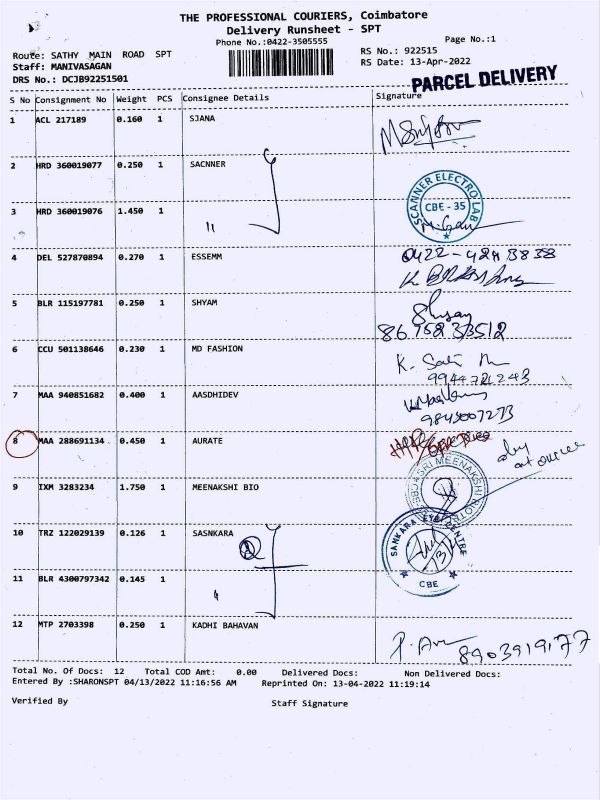 THE PROFESSIONAL COURIERS, Coimbatore
Delivery Runsheet - SPT
Phone No.:0422-3505555
Page No.:1
Route: SATHY MAIN ROAD SPT
RS No.: 922515
Staff: MANIVASAGAN
RS Date: 13-Apr-2022
DRS No.: DCJB92251501
PARCEL DELIVERY
S No Consignment No Weight PCS Consignee Details Signature
1 ACL 217189 0.160 1 SJANA
2 HRD 360019077 0.250 1 SACNNER
3 HRD 360019076 1.450 1 "
SCANNER ELECTRO LAB
CBE - 35
4 DEL 527870894 0.270 1 ESSEMM
5 BLR 115197781 0.250 1 SHYAM
6 CCU 501138646 0.230 1 MD FASHION
7 MAA 940851682 0.400 1 AASDHIDEV
9843007273
8 MAA 288691134 0.450 1 AURATE
9 IXM 3283234 1.750 1 MEENAKSHI BIO
SRI MEENAKSHI
10 TRZ 122029139 0.126 1 SASNKARA
SANKARA EYE CENTRE
CBE
11 BLR 4300797342 0.145 1
12 MTP 2703398 0.250 1 KADHI BAHAVAN
8903919177
Total No. Of Docs: 12 Total COD Amt: 0.00 Delivered Docs: Non Delivered Docs:
Entered By :SHARONSPT 04/13/2022 11:16:56 AM Reprinted On: 13-04-2022 11:19:14
Verified By Staff Signature